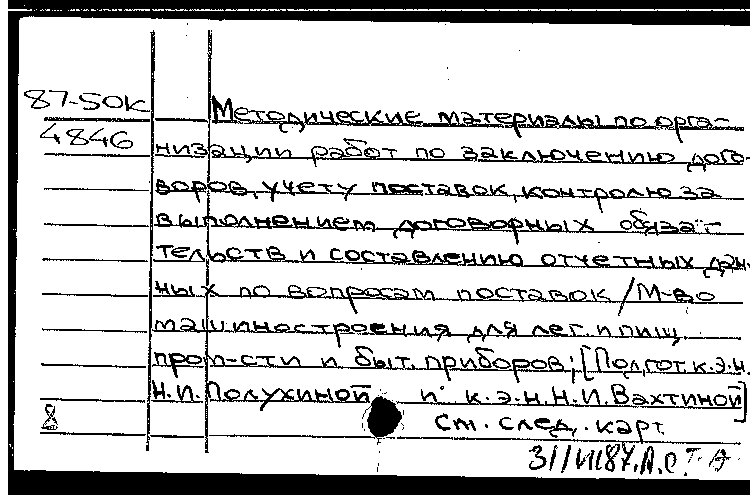 87-50к
4846
Методические материалы по орга-
низации работ по заключению дого-
воров, учету поставок, контролю за
выполнением договорных обяза-
тельств и составлению отчетных дан-
ных по вопросам поставок / М-во
машиностроения для лег. и пищ.
пром-сти и быт. приборов; [Подгот. к.э.н.
Н.И. Полухиной и к.э.н. Н.И. Вахтиной]
8
см. след. карт